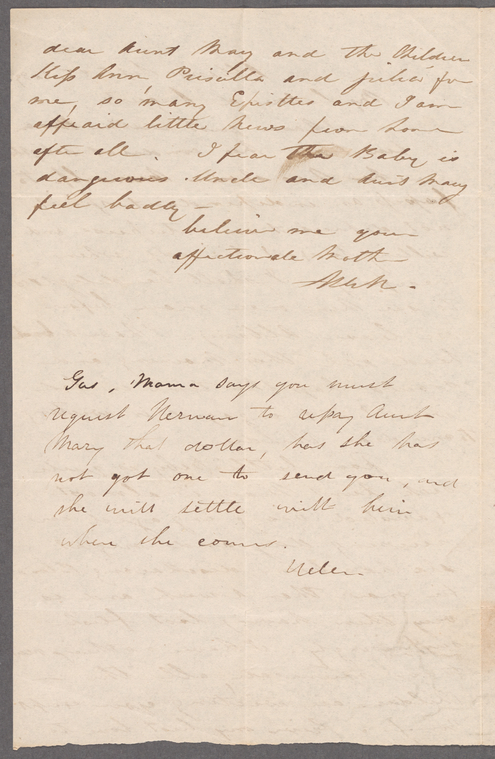 dear Aunt Mary and the Children
Kiss Ann, Priscilla and Julia for
me, so many Epistles and I am
affraid little News from home
after all. I fear the Baby is
dangerous. Uncle and Aunt Mary
feel badly —
believe me your
affectionate Mother

Gus, Mama says you must
request Herman to repay Aunt
Mary that dollar, has she has
not got one to send you, and
she will settle with him
when she comes.
Helen